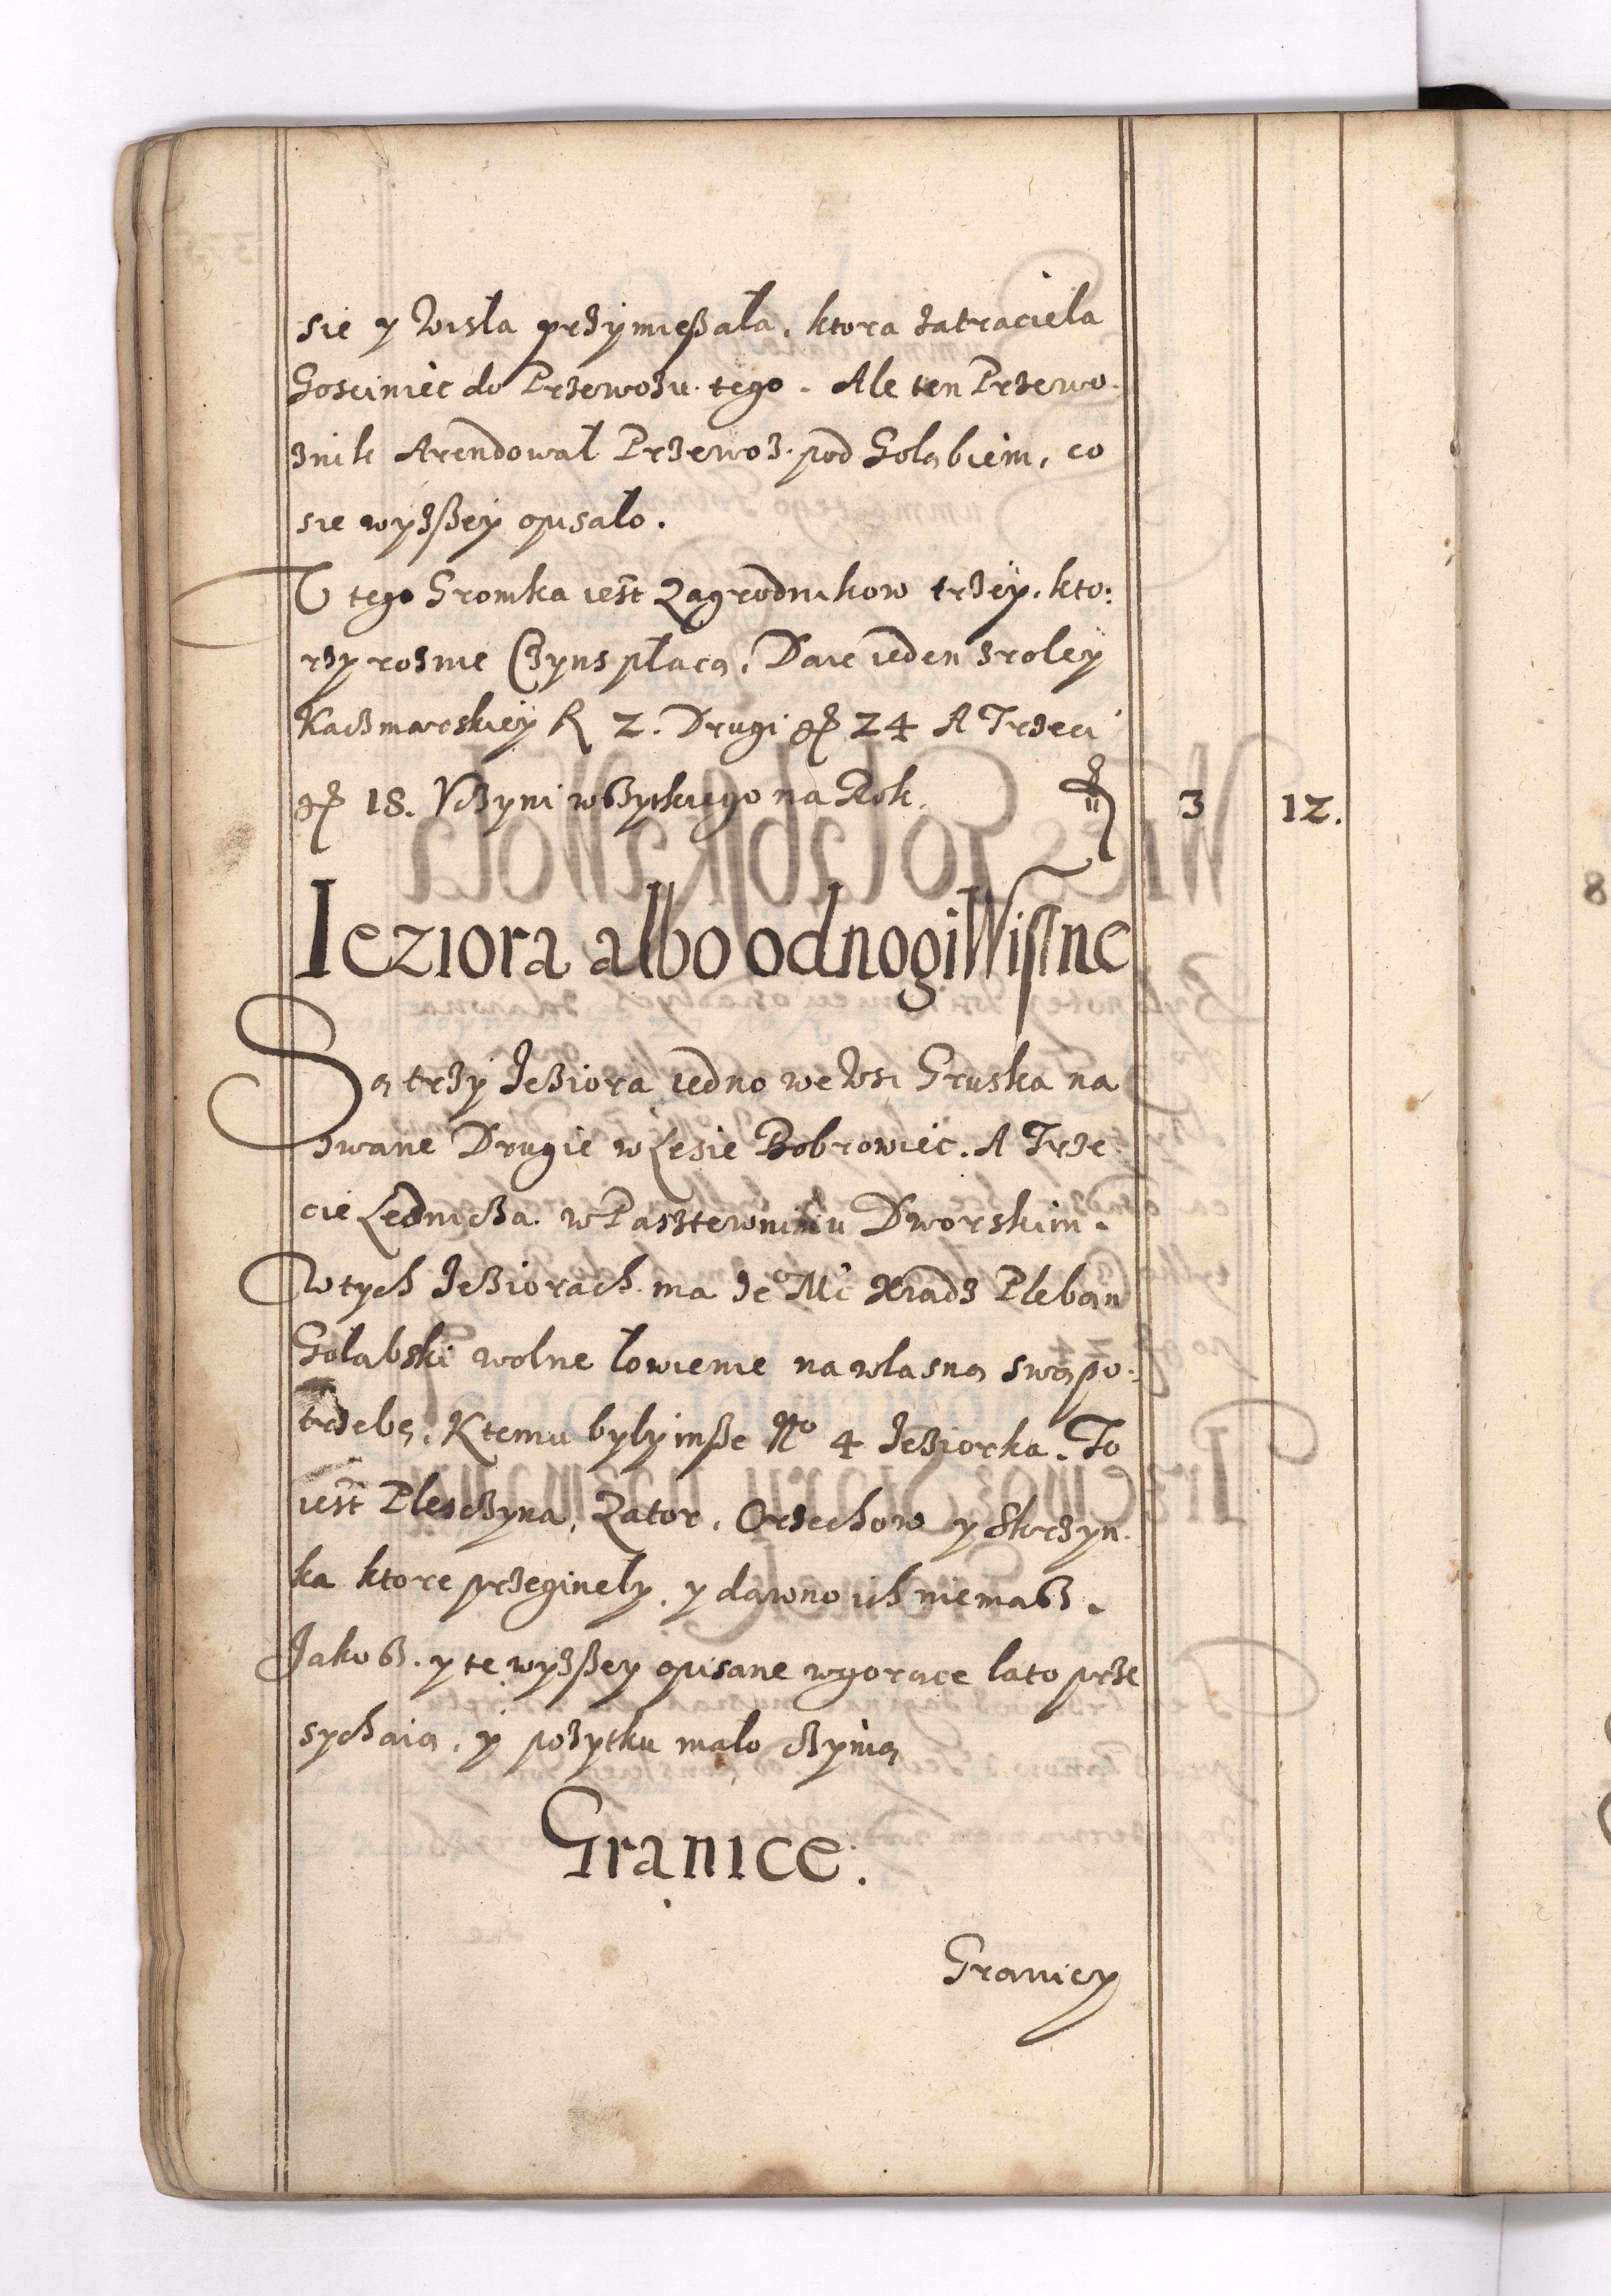 sie y Wisła przymieszała, ktora zatraciela
Gosciniec do Przewozu tego. Ale ten Przewo
znik Arendował Przewoz pod Gołąbiem, co
sie wyzszey opisało.
U tego Gromka iest Zagrodnikow trzey, kto:
rzy roznie Czyns płacą. Daie ieden z roley
Kaczmarskiey fl 2. Drugi gr 24 A Trzeci
gr 18. Vczyni wszytkiego na Rok. fl 3 12.
Ieziora albo odnogi Wiślne
Są trzy Jeziora iedno we Wsi Gruska na
zwane Drugie w Lesie Bobrowiec. A Trze
cie Lednicza w Pasztewniku Dworskim.
W tych Jeziorach ma Je Mc Xiądz Pleban
Gołąbski wolne łowienie na własną swą po:
trzebę. K temu były insze No 4 Jeziorka. To
iest Plesczyna, Zator, Orzechow y Skrzyn
ka ktore przeginely, y dawno ich niemasz.
Jakosz y te wyzszey opisane w gorące lato prze
sychaią, y pozytku mało czynią
Granice.
Granicy